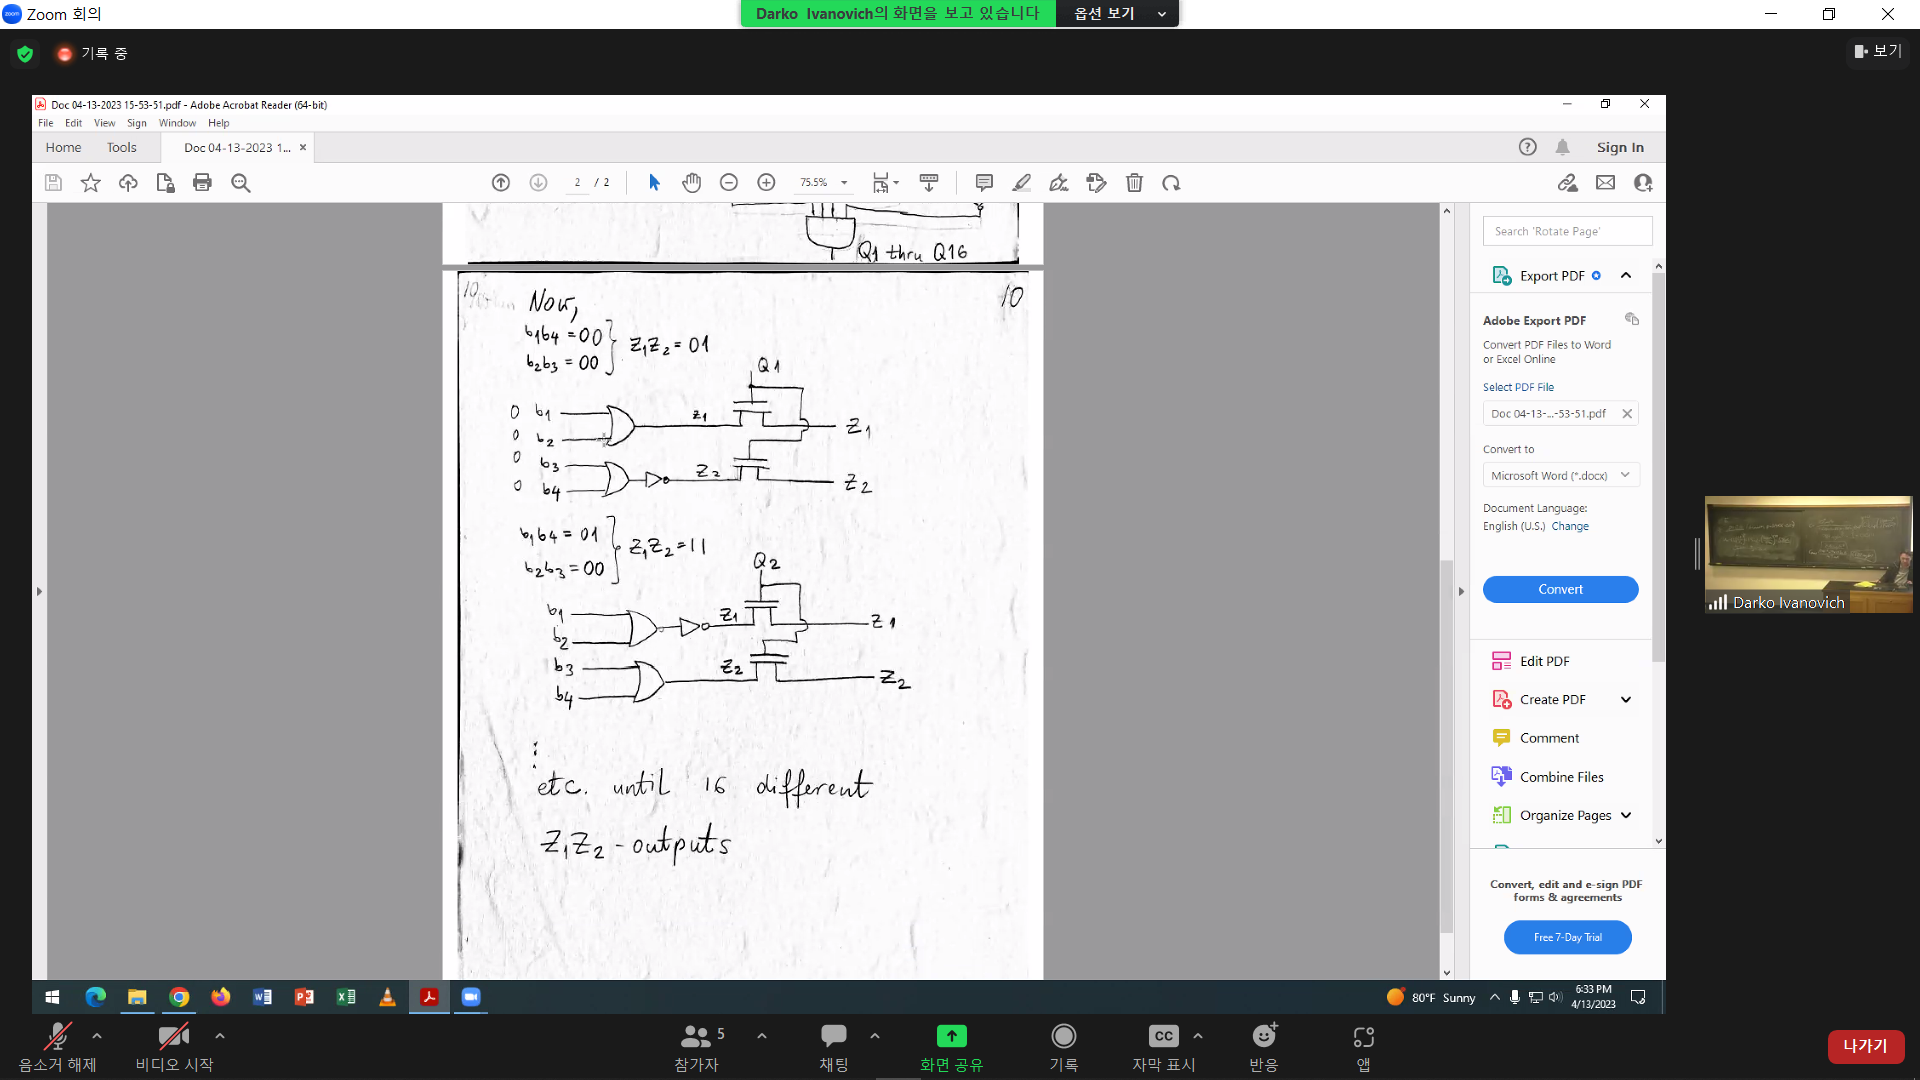 Zoom 회의
Darko Ivanovich의 화면을 보고 있습니다
옵션 보기
기록 중
보기
Doc 04-13-2023 15-53-51.pdf - Adobe Acrobat Reader (64-bit)
File Edit View Sign Window Help
Home Tools Doc 04-13-2023 1... ×
Sign In
2 / 2
75.5%
Q1 thru Q16
10
10
Now,
b1b4 = 00
b2b3 = 00
Z1Z2 = 01
Q1
0 b1
0 b2
0 b3
0 b4
Z1
Z1
Z2
Z2
b1b4 = 01
b2b3 = 00
Z1Z2 = 11
Q2
b1
b2
b3
b4
Z1
Z1
Z2
Z2
etc. until 16 different
Z1Z2 - outputs
Search 'Rotate Page'
Export PDF
Adobe Export PDF
Convert PDF Files to Word
or Excel Online
Select PDF File
Doc 04-13-...-53-51.pdf
Convert to
Microsoft Word (*.docx)
Document Language:
English (U.S.) Change
Convert
Edit PDF
Create PDF
Comment
Combine Files
Organize Pages
Convert, edit and e-sign PDF
forms & agreements
Free 7-Day Trial
Darko Ivanovich
80°F Sunny
6:33 PM
4/13/2023
음소거 해제
비디오 시작
5
참가자
채팅
화면 공유
기록
CC
자막 표시
반응
앱
나가기